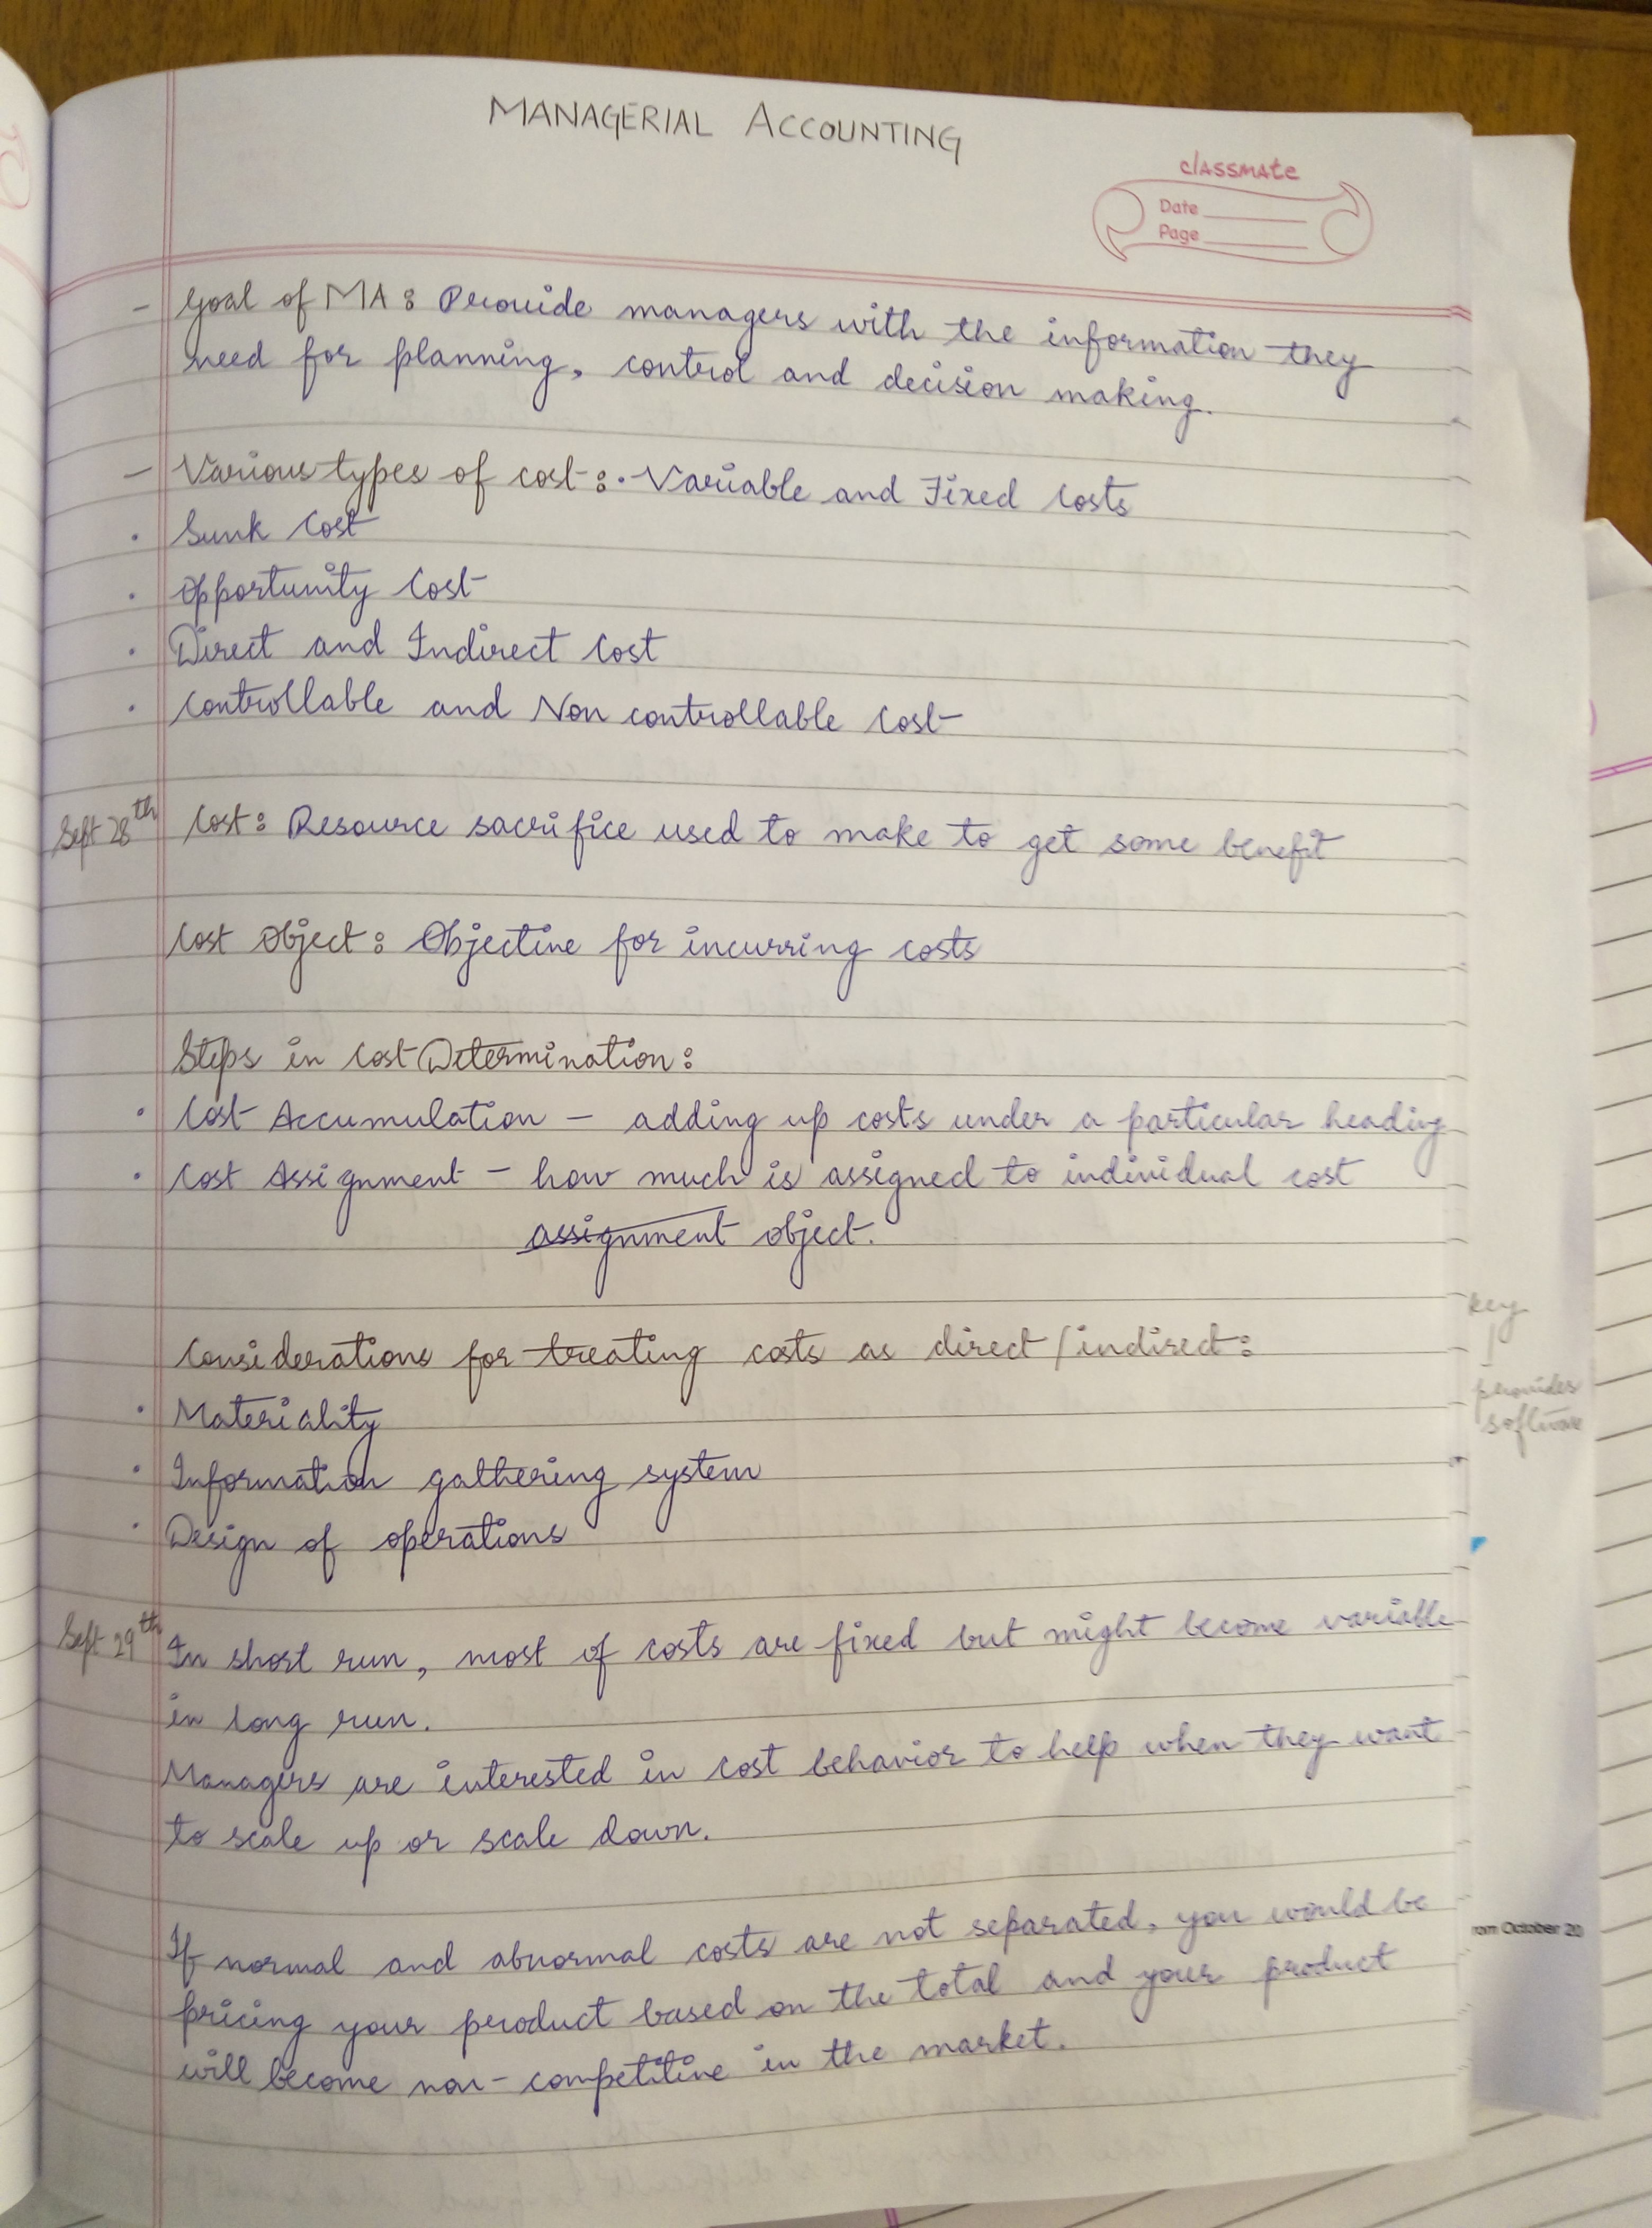 MANAGERIAL ACCOUNTING
classmate
Date
Page
- Goal of MA : Provide managers with the information they
need for planning, control and decision making.
- Various types of cost : · Variable and Fixed Costs
· Sunk Cost
· Opportunity Cost
· Direct and Indirect Cost
· Controllable and Non controllable Cost
Sept 28th Cost : Resource sacrifice used to make to get some benefit
Cost Object : Objective for incurring costs
Steps in Cost Determination :
· Cost Accumulation - adding up costs under a particular heading
· Cost Assignment - how much is assigned to individual cost
assignment object.
Considerations for treating costs as direct/indirect :
· Materiality
· Information gathering system
· Design of operations
Sept 29th In short run, most of costs are fixed but might become variable
in long run.
Managers are interested in cost behavior to help when they want
to scale up or scale down.
If normal and abnormal costs are not separated, you would be
pricing your product based on the total and your product
will become non-competitive in the market.
key
provides
software
rom October 20